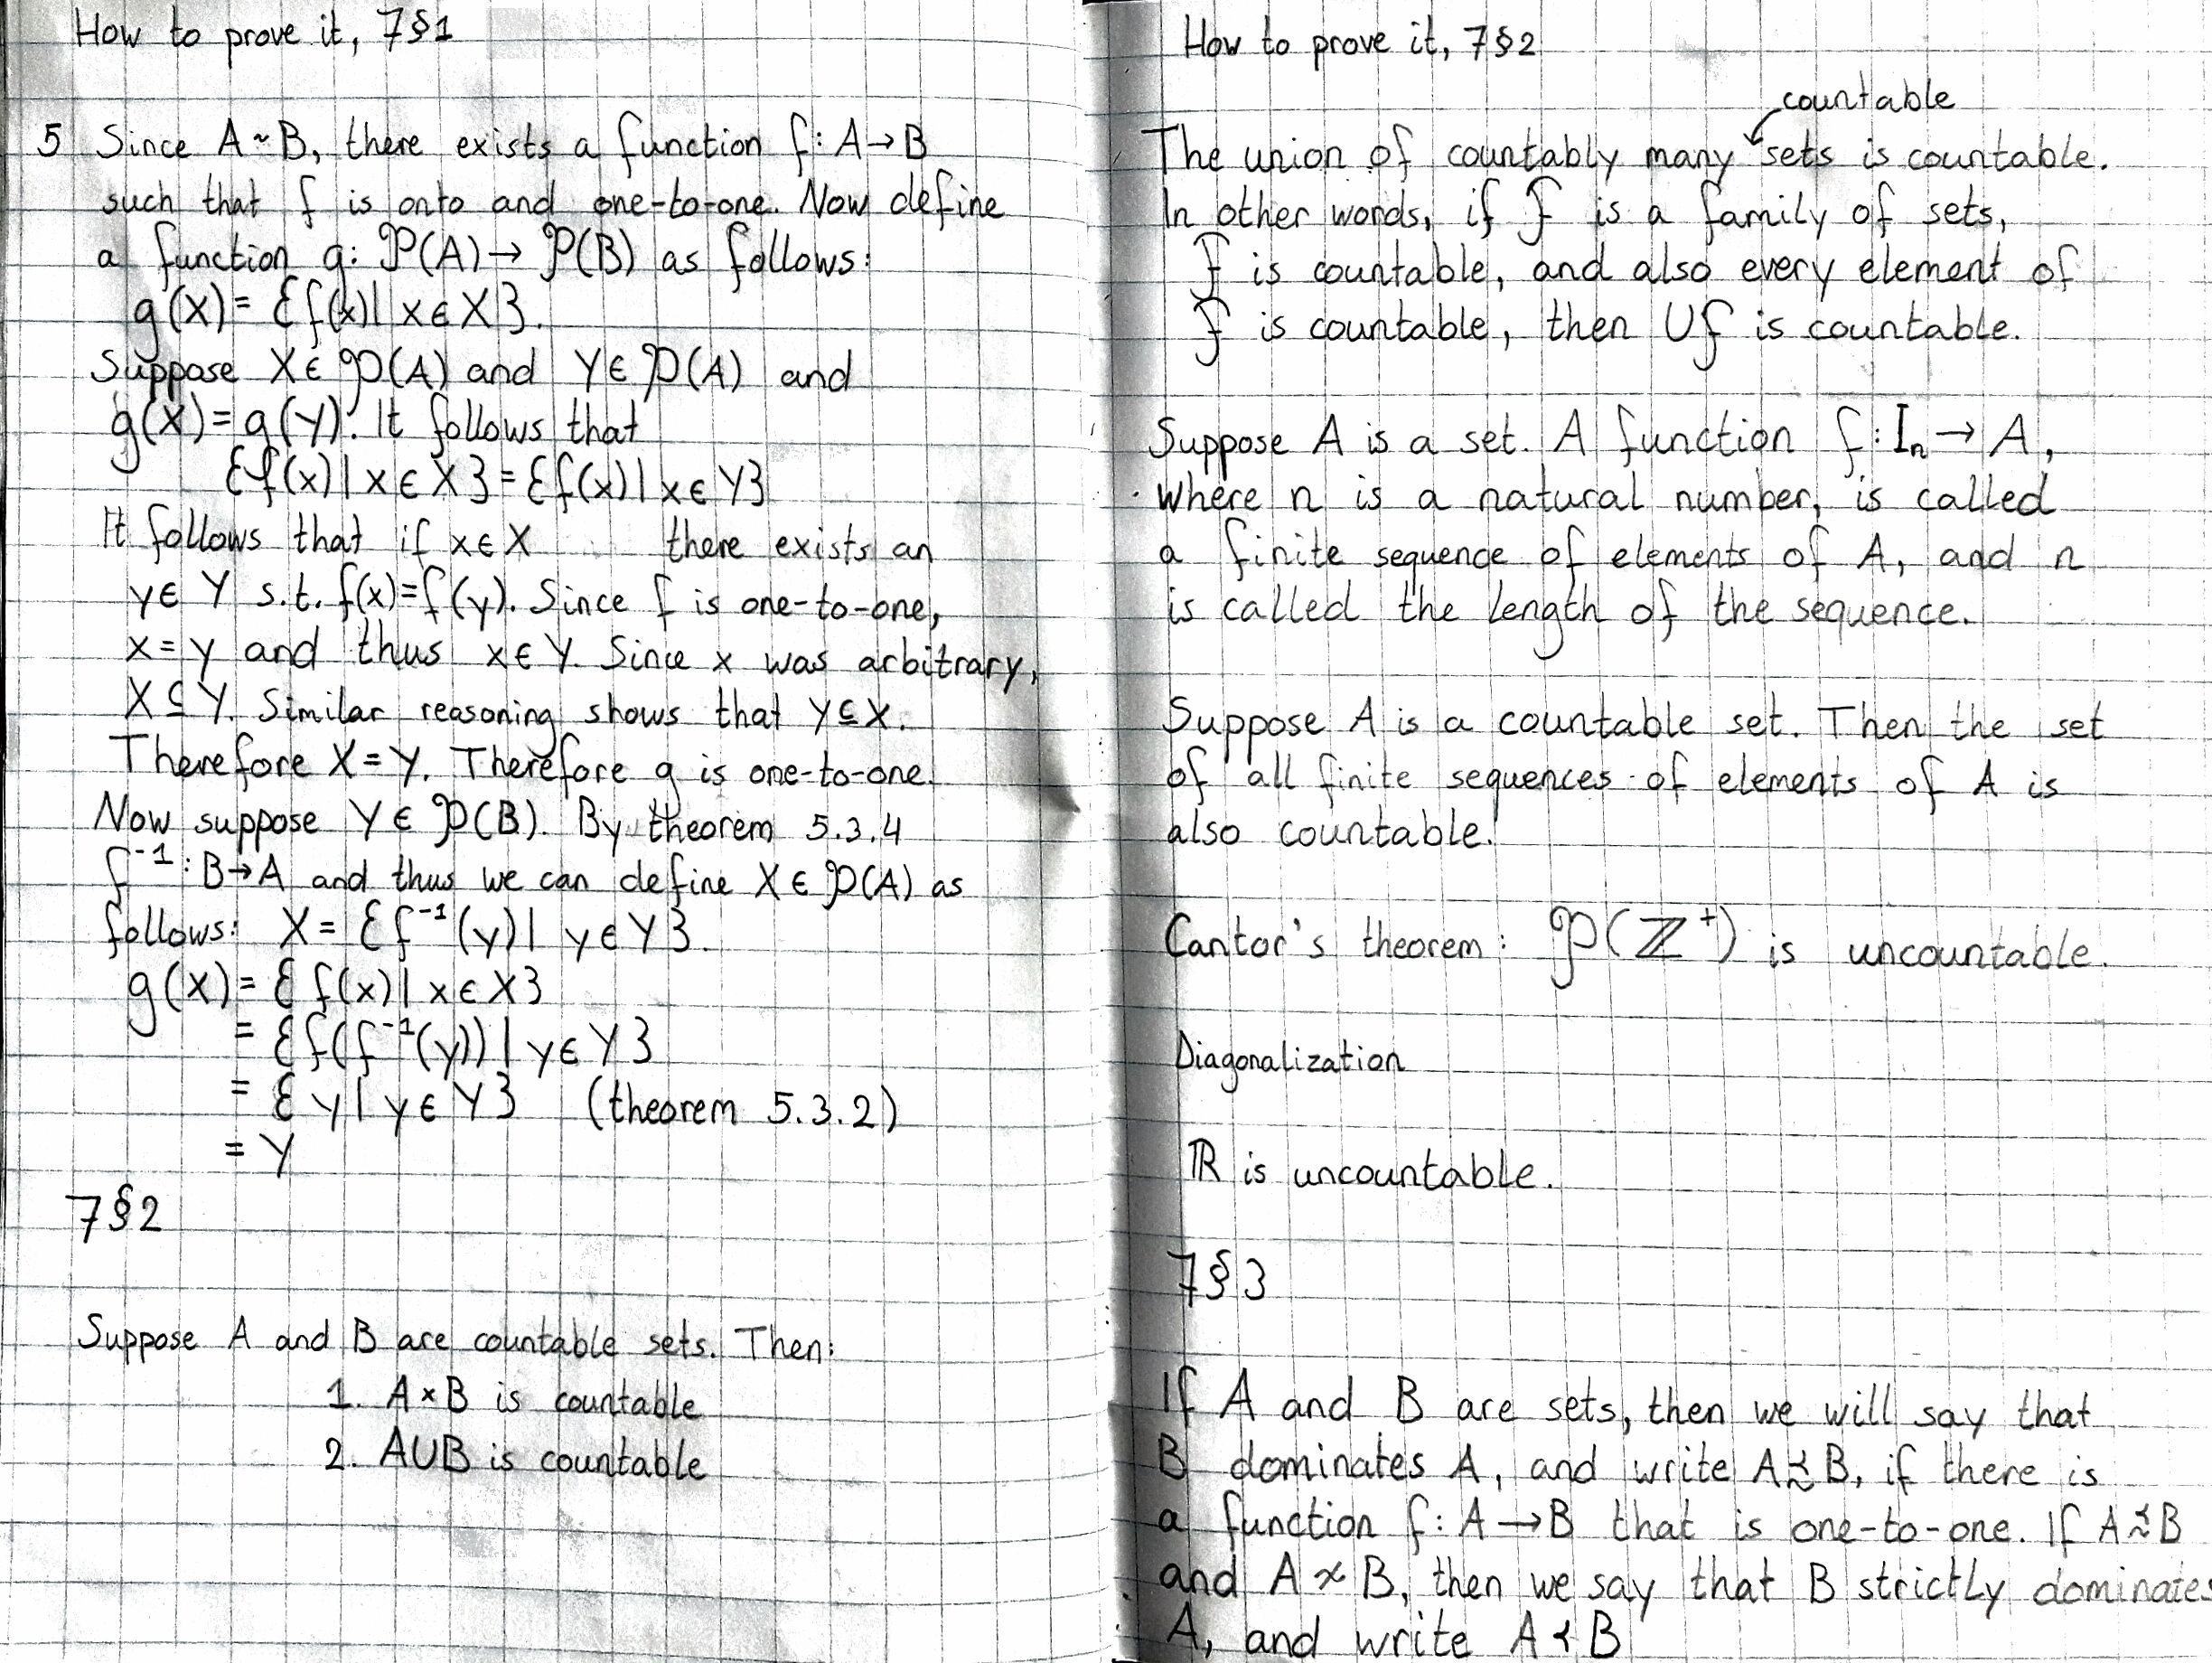 How to prove it, 7§1
5 Since A~B, there exists a function f: A→B
such that f is onto and one-to-one. Now define
a function g: 𝒫(A)→ 𝒫(B) as follows:
g(X)= {f(x)| x∈X}.
Suppose X∈ 𝒫(A) and Y∈ 𝒫(A) and
g(X)=g(Y). It follows that
{f(x)| x∈X}={f(x)| x∈Y}
It follows that if x∈X there exists an
y∈Y s.t. f(x)=f(y). Since f is one-to-one,
x=y and thus x∈Y. Since x was arbitrary,
X⊆Y. Similar reasoning shows that Y⊆X.
Therefore X=Y. Therefore g is one-to-one.
Now suppose Y∈ 𝒫(B). By theorem 5.3.4
f⁻¹: B→A and thus we can define X∈ 𝒫(A) as
follows: X= {f⁻¹(y)| y∈Y}.
g(X)= {f(x)| x∈X}
= {f(f⁻¹(y))| y∈Y}
= {y| y∈Y} (theorem 5.3.2)
= Y
7§2
Suppose A and B are countable sets. Then:
1. A×B is countable
2. A∪B is countable
How to prove it, 7§2
countable
The union of countably many sets is countable.
In other words, if ℱ is a family of sets,
ℱ is countable, and also every element of
ℱ is countable, then ∪ℱ is countable.
Suppose A is a set. A function f: Iₙ→A,
where n is a natural number, is called
a finite sequence of elements of A, and n
is called the length of the sequence.
Suppose A is a countable set. Then the set
of all finite sequences of elements of A is
also countable.
Cantor's theorem: 𝒫(ℤ⁺) is uncountable.
Diagonalization
ℝ is uncountable.
7§3
If A and B are sets, then we will say that
B dominates A, and write A≾B, if there is
a function f: A→B that is one-to-one. If A≾B
and A≁B, then we say that B strictly dominates
A, and write A≺B